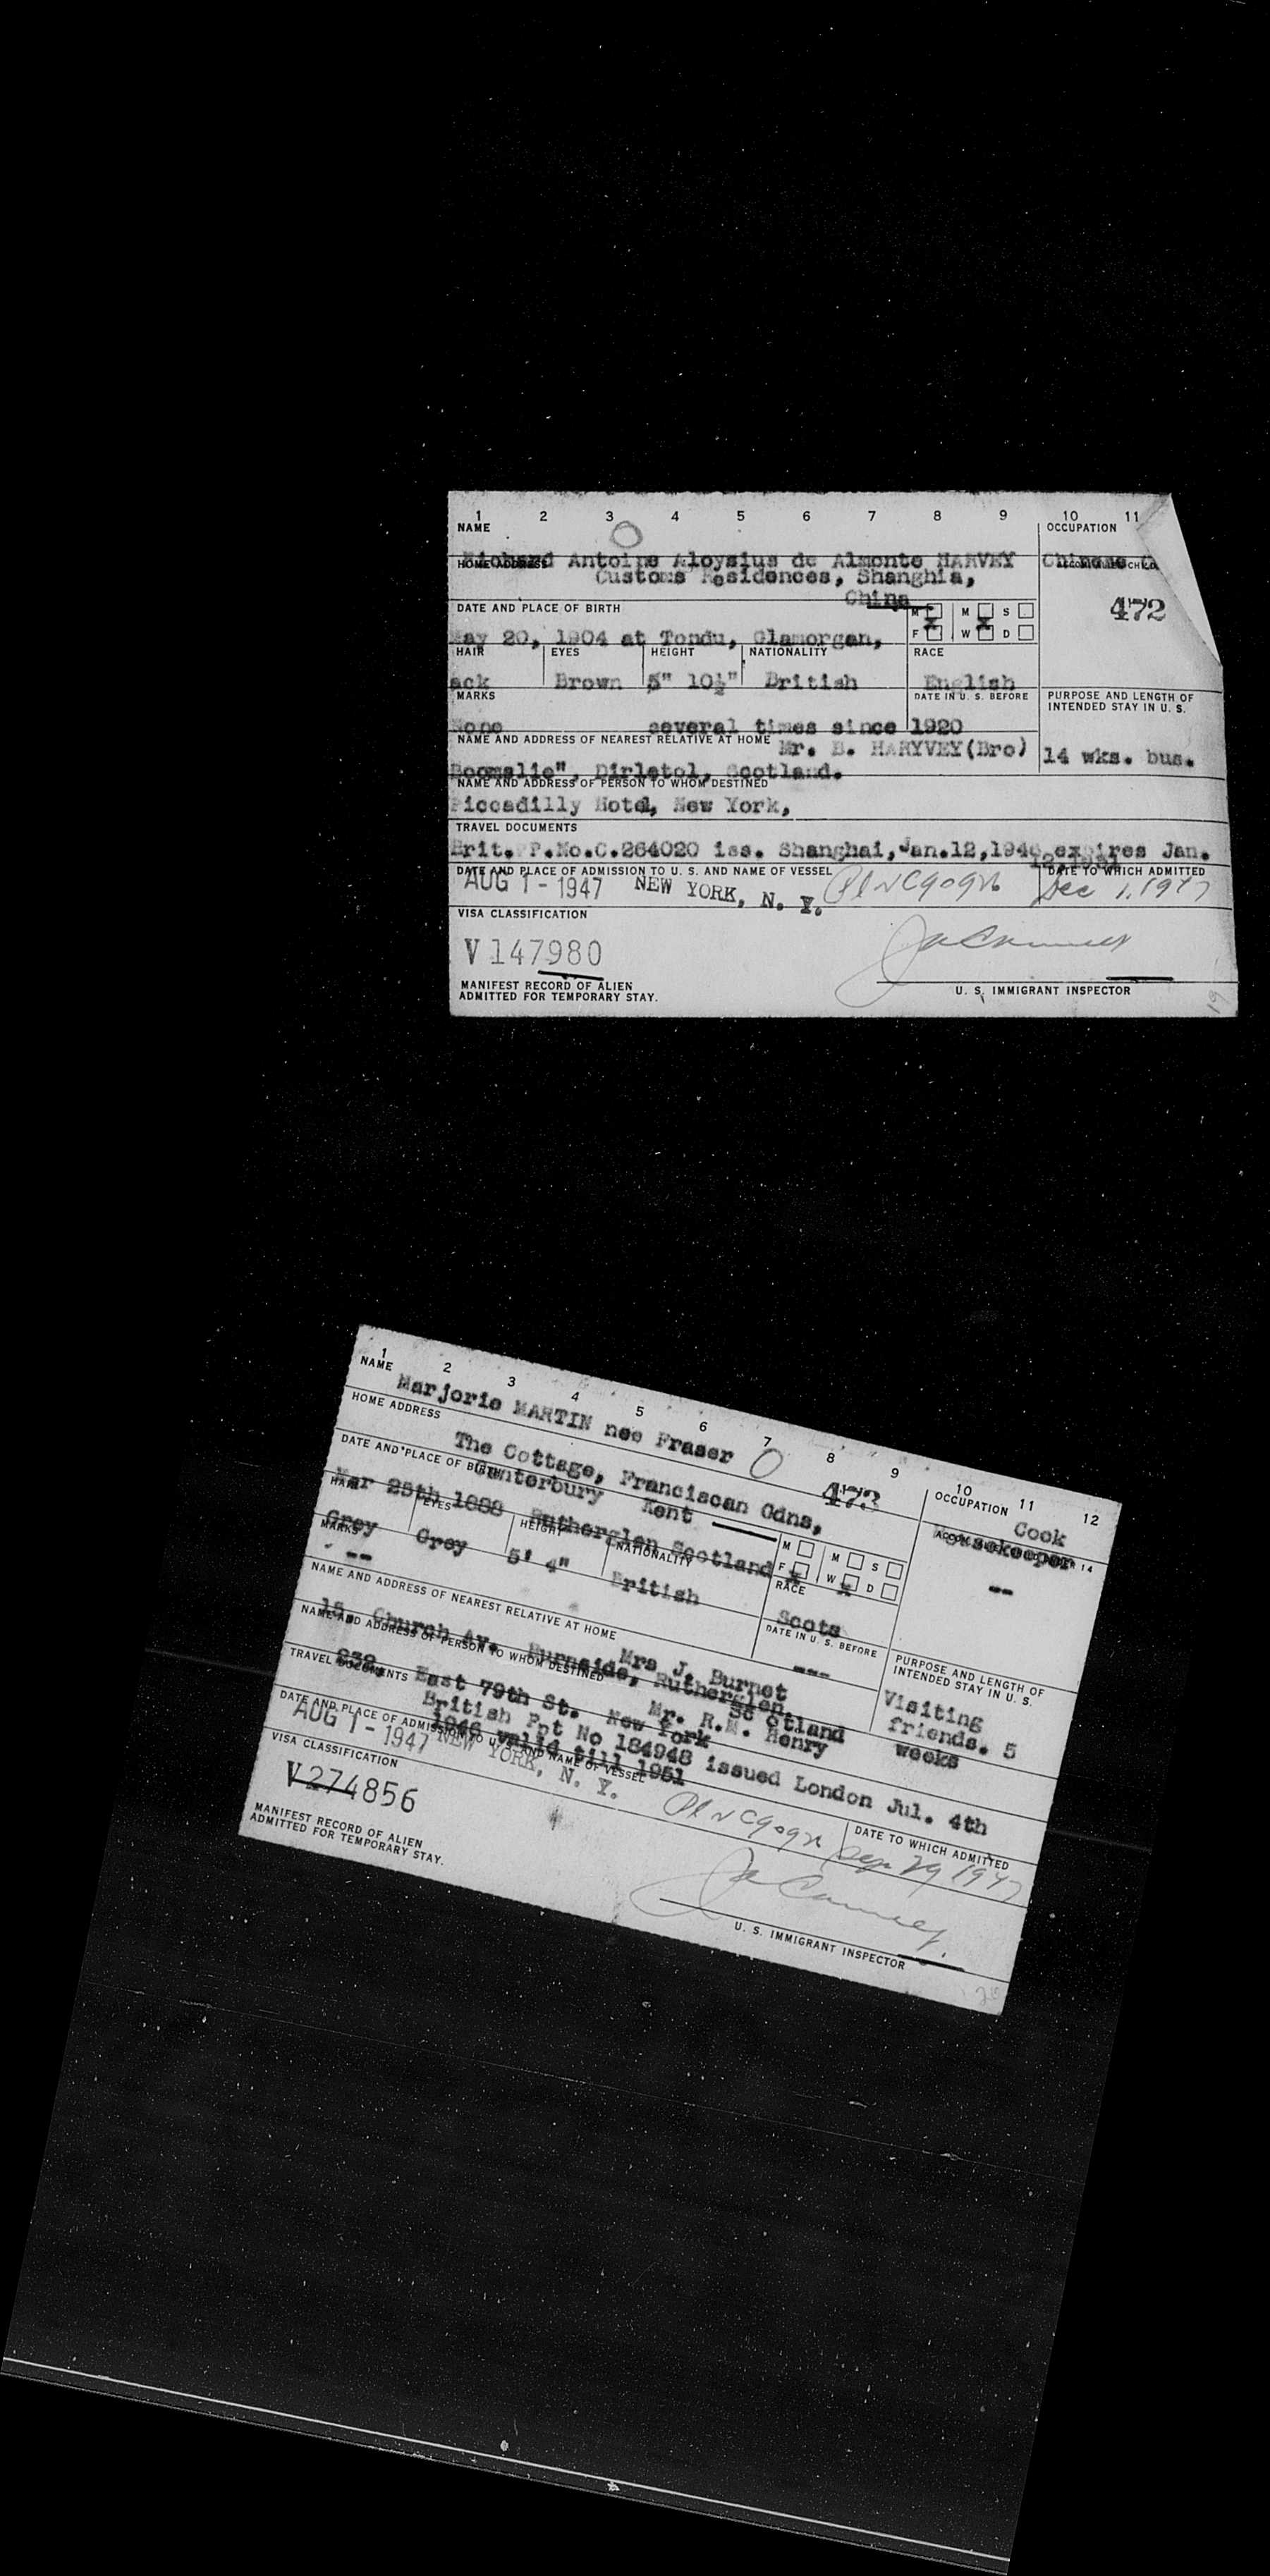 1 2 3 4 5 6 7 8 9 10 11
NAME OCCUPATION
Richard Antoine Aloysius de Almonte HARVEY Chinese
HOME ADDRESS
Customs Residences, Shanghia,
China
472
DATE AND PLACE OF BIRTH M M S
May 20, 1904 at Tondu, Glamorgan, F W D
HAIR EYES HEIGHT NATIONALITY RACE
ack Brown 5" 10½" British English
MARKS DATE IN U. S. BEFORE PURPOSE AND LENGTH OF
INTENDED STAY IN U. S.
None several times since 1920
NAME AND ADDRESS OF NEAREST RELATIVE AT HOME Mr. B. HARYVEY(Bro) 14 wks. bus.
Dirletol, Scotland.
NAME AND ADDRESS OF PERSON TO WHOM DESTINED
Piccadilly Hotel, New York,
TRAVEL DOCUMENTS
Brit. P.No.C.264020 iss. Shanghai, Jan.12,1946 expires Jan.
12,1951
DATE AND PLACE OF ADMISSION TO U. S. AND NAME OF VESSEL DATE TO WHICH ADMITTED
AUG 1 - 1947 NEW YORK, N. Y. Dec 1, 1947
VISA CLASSIFICATION
V 147980
MANIFEST RECORD OF ALIEN
ADMITTED FOR TEMPORARY STAY.
U. S. IMMIGRANT INSPECTOR
19
1 2 3 4 5 6 7 8 9 10 11 12
NAME OCCUPATION
Marjorie MARTIN nee Fraser 473 Cook
Housekeeper
HOME ADDRESS
The Cottage, Franciscan Gdns,
Canterbury Kent
--
DATE AND PLACE OF BIRTH M M S
Mar 25th 1888 Rutherglen Scotland F W D
HAIR EYES HEIGHT NATIONALITY RACE
Grey Grey 5' 4" British Scots
MARKS DATE IN U. S. BEFORE PURPOSE AND LENGTH OF
INTENDED STAY IN U. S.
-- ---
NAME AND ADDRESS OF NEAREST RELATIVE AT HOME Mrs J. Burnet Visiting
friends. 5
weeks
15, Church Av. Burnside, Rutherglen,
Sc otland
NAME AND ADDRESS OF PERSON TO WHOM DESTINED Mr. R.M. Henry
239, East 79th St. New York
TRAVEL DOCUMENTS
British Ppt No 184948 issued London Jul. 4th
1946 valid till 1951
DATE AND PLACE OF ADMISSION TO U. S. AND NAME OF VESSEL DATE TO WHICH ADMITTED
AUG 1 - 1947 NEW YORK, N. Y. Sep 29 1947
VISA CLASSIFICATION
V274856
MANIFEST RECORD OF ALIEN
ADMITTED FOR TEMPORARY STAY.
U. S. IMMIGRANT INSPECTOR